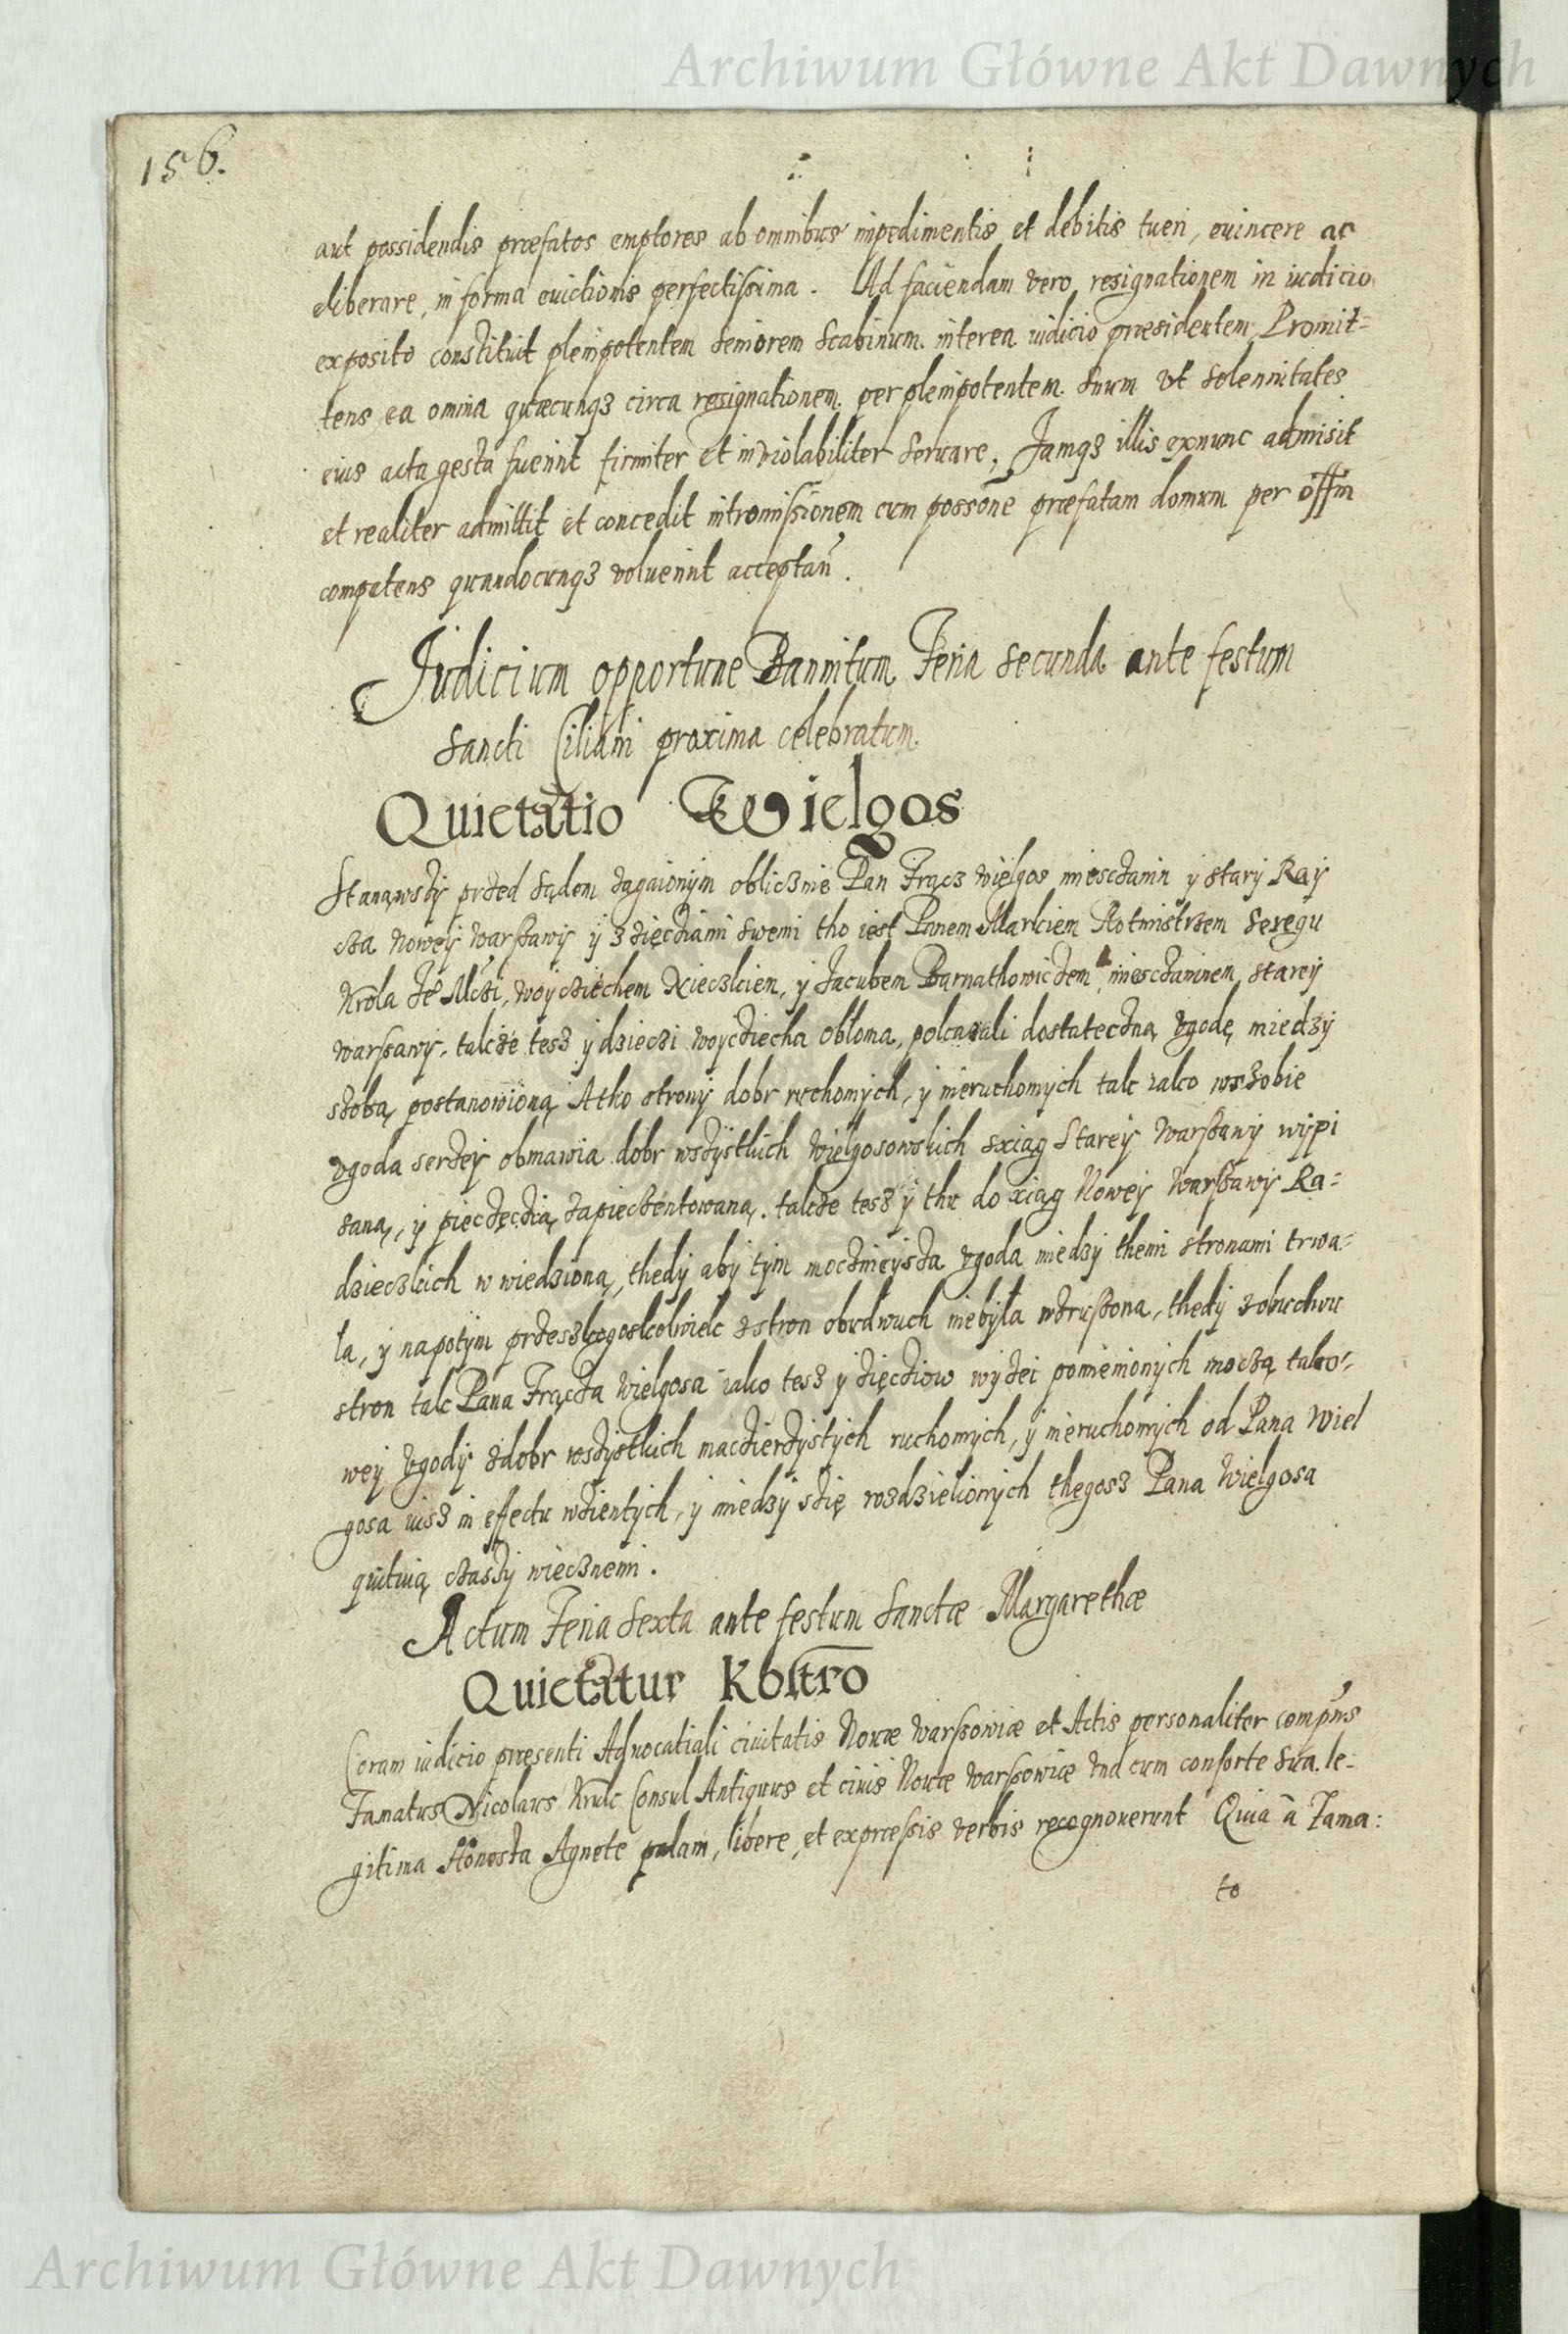 Archiwum Główne Akt Dawnych
156.
aut possidendis præfatos emptores ab omnibus impedimentis et debitis tueri, euincere ac
eliberare, in forma euictionis perfectissima. Ad faciendam vero resignationem in iudicio
exposito constituit plenipotentem seniorem Scabinum interea iudicio præsidentem Promit=
tens ea omnia quæcunqз circa resignationem per plenipotentem suum vt solennitates
eius acta gesta fuerint firmiter et inviolabiliter seruare, Jamqз illis exnunc admisit
et realiter admittit et concedit intromissionem cum possõne præfatam domum per offm
competens quandocunqз voluerint acceptañ.
Judicium opportune Bannitum Feria secunda ante festum
Sancti Ciliani proxima celebratum
Quietatio Wielgos
Stanąwszy przed sądem zagaionym oblicznie Pan Frącz Wielgos miesczanin y stary Ray
cza Nowey Warszawy y z zięciami swemi tho iest Panem Markiem Rotmistrzem seregu
Krola Je° Mczi, Woyciechem Kieczkiem, y Jacubem Barnathowiczem miesczaninem starey
Warszawy, takze tesz y dzieczi Woyciecha Obłoma, pokazali dostateczną vgodę miedzy
szobą postanowioną A tho strony dobr ruchomych, y nieruchomych tak iako wszobie
vgoda serzey obmawia dobr wszystkich Wielgosowskich sxiąg Starey Warszawy wypi
saną, y pięczęczią zapieczentowaną. takze tesz y thu do xiąg Nowey Warszawy Ra=
dzieczkich w wiedzioną, thedy aby tym mocznieysza vgoda miedzy themi stronami trwa=
ła, y napotym przeszkogoskolwiek z stron obudwuch niebyła wzruszona, thedy z obuchwu
stron tak Pana Frącza Wielgosa iako tesz y zięcziow wyzei pomienionych moczą tako=
wey vgody zdobr wszystkich macierzystych ruchomych, y nieruchomych od Pana Wiel
gosa iusz in effectu wzientych, y miedzy szię rozdzielionych thegosz Pana Wielgosa
quituią czassy wiecznemi.
Actum Feria sexta ante festum Sanctæ Margarethæ
Quietatur Kostro
Coram iudicio præsenti Aduocatiali ciuitatis Nouæ Warssowiæ et Actis personaliter compñs
Famatus Nicolaus Krulc Consul Antiquus et ciuis Nouæ Warssowiæ vna cum consorte sua le=
gitima Honesta Agnete palam, libere, et expræssis verbis recognouerunt Quia à Fama:
to
Archiwum Główne Akt Dawnych